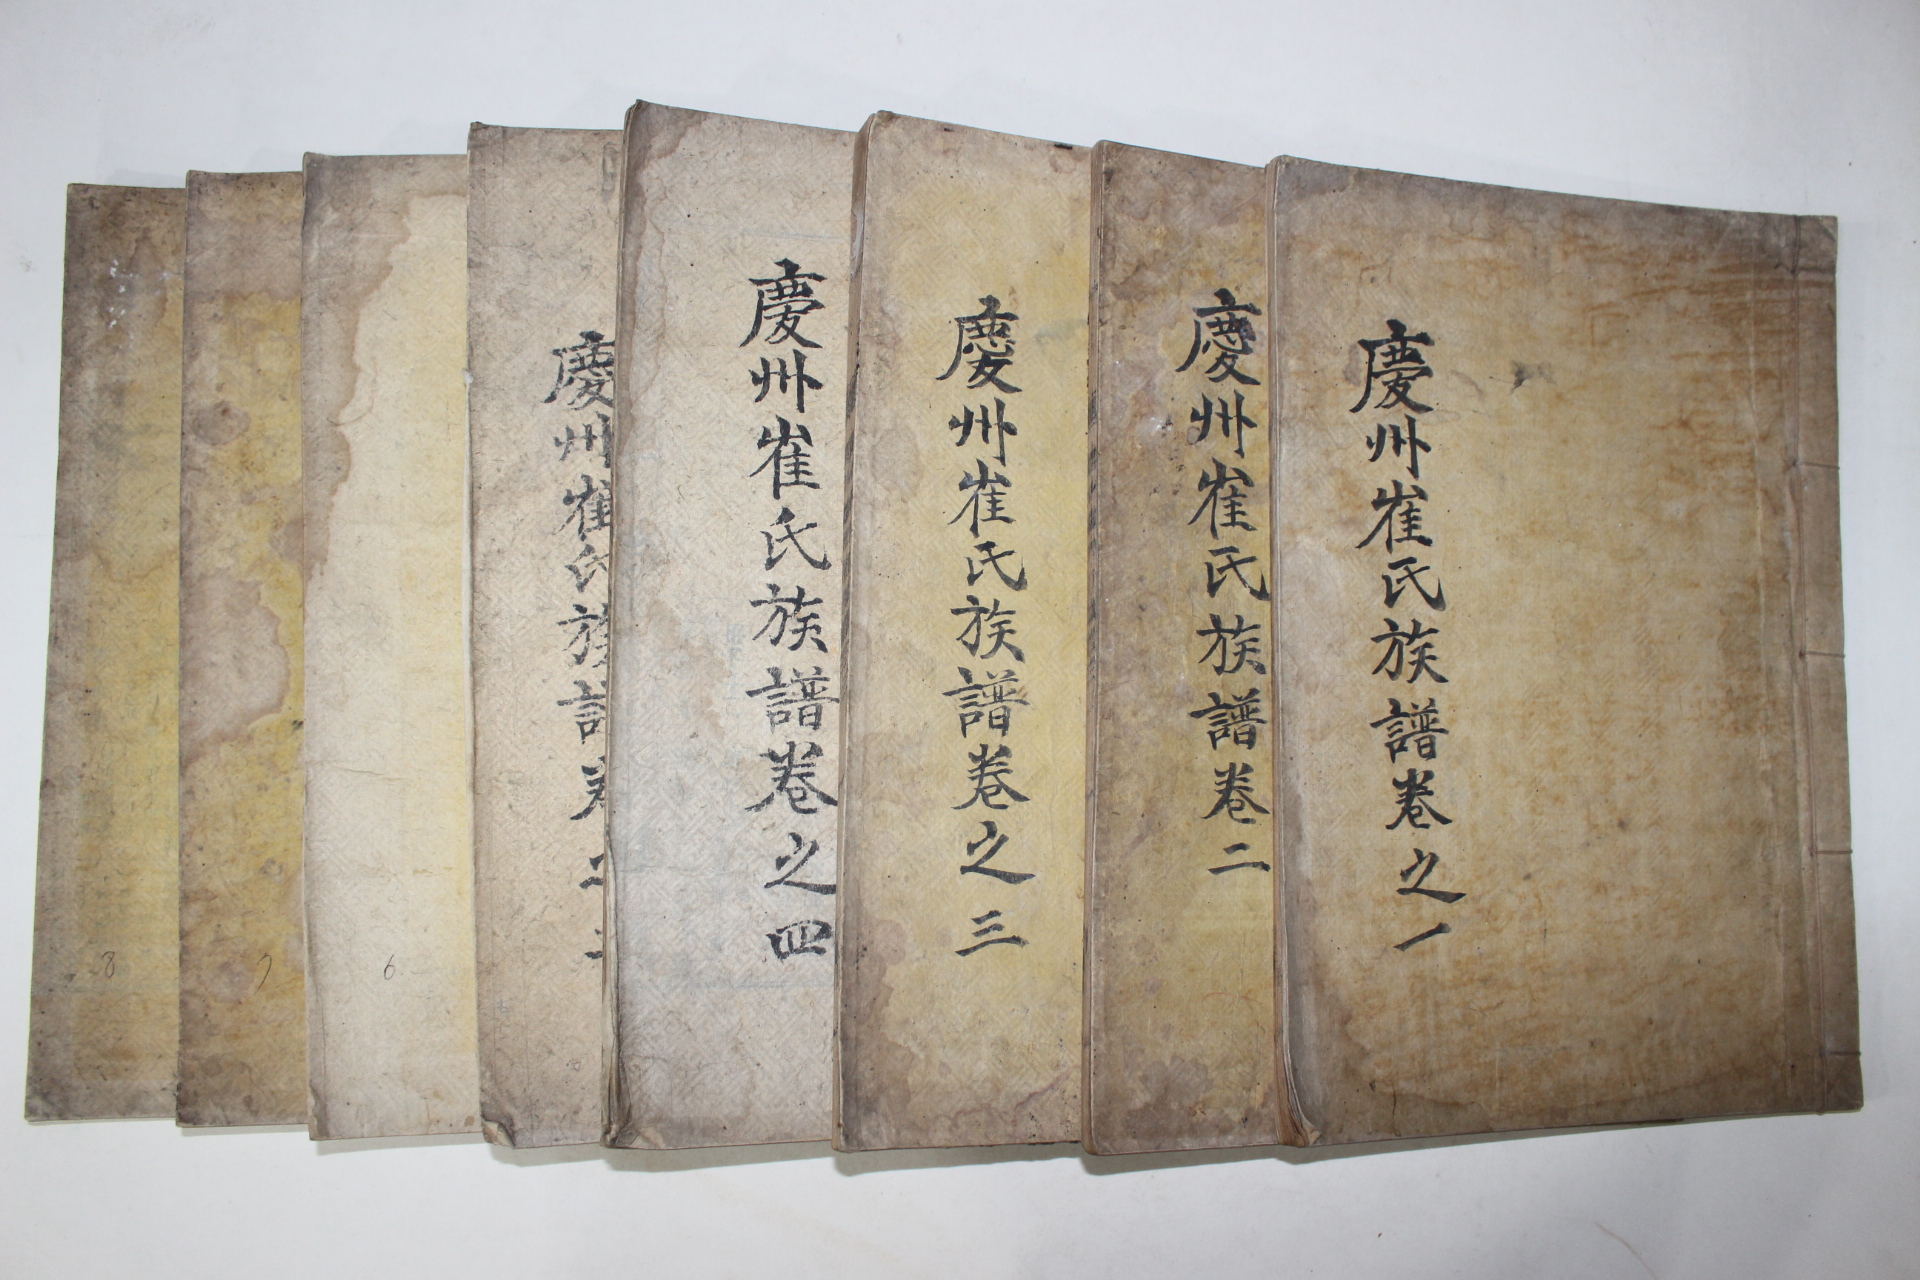 慶州崔氏族譜卷之一
慶州崔氏族譜卷二
慶州崔氏族譜卷之三
慶州崔氏族譜卷之四
慶州崔氏族譜卷之五
6
7
8